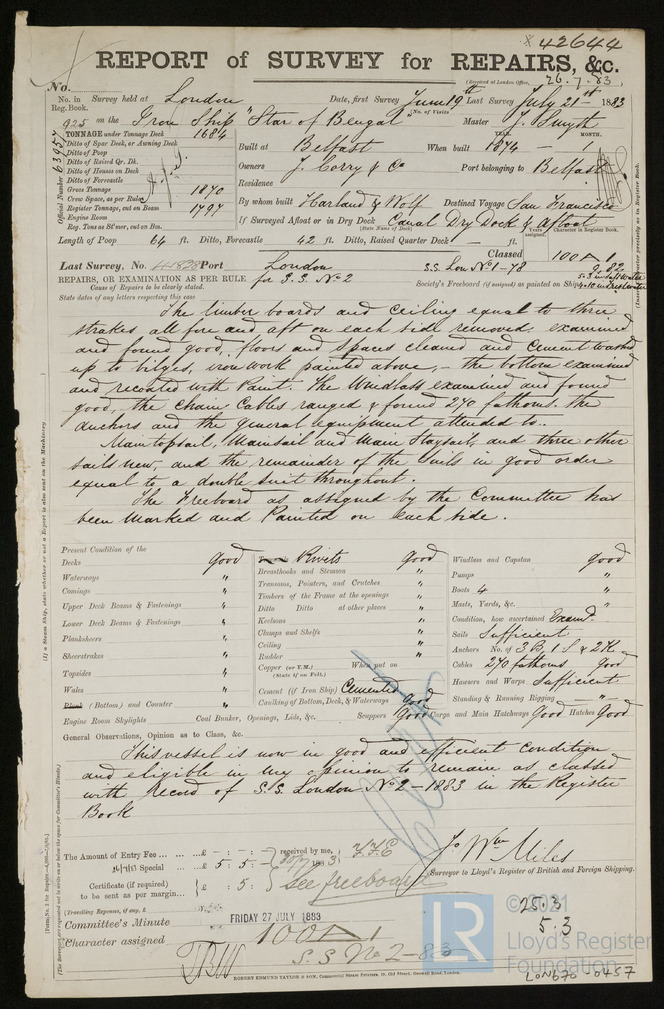 × 42644
REPORT of SURVEY for REPAIRS, &c.
(Received at London Office, 26.7.83.
No.
No. in Reg. Book. Survey held at London Date, first Survey June 19th Last Survey July 21st 1883
(No. of Visits
925 on the Iron Ship "Star of Bengal" Master J. Smyth
TONNAGE under Tonnage Deck 1684
Ditto of Spar Deck, or Awning Deck
Ditto of Poop
Ditto of Raised Qr. Dk.
Ditto of Houses on Deck
Ditto of Forecastle
Gross Tonnage 1870
Crew Space, as per Rule
Register Tonnage, cut on Beam 1797
Engine Room
Reg. Tons as St'mer, cut on Bm.
Official Number 63957
YEAR. MONTH.
Built at Belfast When built 1874 —
Owners J. Corry & Co Port belonging to Belfast
Residence
By whom built Harland & Wolf Destined Voyage San Francisco
If Surveyed Afloat or in Dry Dock Canal Dry Dock & afloat
(State Name of Dock)
Years assigned. Character in Register Book.
Length of Poop 64 ft. Ditto, Forecastle 42 ft. Ditto, Raised Quarter Deck — ft.
Classed 100 A 1
9.82
Last Survey, No. 44828 Port London S.S. Lon No 1-78
REPAIRS, OR EXAMINATION AS PER RULE for S.S. No 2
Society's Freeboard (if assigned) as painted on Ship
Cause of Repairs to be clearly stated.
State dates of any letters respecting this case
The limber boards and ceiling equal to three
strakes all fore and aft on each side removed, examined
and found good, floors and spaces cleaned and cement washed
up to bilges, iron work painted above, — the bottom examined
and recoated with Paint. The Windlass examined and found
good, the chain Cables ranged & found 270 fathoms. the
anchors and the general equipment attended to.
Maintopsail, Mainsail and Main Staysail, and three other
sails new, and the remainder of the Sails in good order
equal to a double suit throughout.
The Freeboard as assigned by the Committee has
been Marked and Painted on each side.
Present Condition of the
Decks good
Waterways "
Comings "
Upper Deck Beams & Fastenings "
Lower Deck Beams & Fastenings "
Planksheers "
Sheerstrakes "
Topsides "
Wales "
Plank (Bottom) and Counter "
Engine Room Skylights Coal Bunker, Openings, Lids, &c.
Rivets good
Breasthooks and Stemson "
Transoms, Pointers, and Crutches "
Timbers of the Frame at the openings "
Ditto Ditto at other places "
Keelsons "
Clamps and Shelfs "
Ceiling "
Rudder "
Copper (or Y.M.) When put on
(State if on Felt.)
Cement (if Iron Ship) Cemented
Caulking of Bottom, Deck, & Waterways good
Scuppers Good Cargo and Main Hatchways Good Hatches Good
Windlass and Capstan good
Pumps "
Boats 4 "
Masts, Yards, &c. "
Condition, how ascertained Examd.
Sails Sufficient
Anchors No. of 3 B, 1 S & 2 K
Cables 270 fathoms good
Hawsers and Warps Sufficient
Standing & Running Rigging "
General Observations, Opinion as to Class, &c.
This vessel is now in good and efficient condition
and eligible in my opinion to remain as classed
with record of S.S. London No 2 - 1883 in the Register
Book
The Amount of Entry Fee ... £ - : - : -
26/7/83 Special ... £ 5 : 5 : -
received by me,
Certificate (if required) £ : 5 :
to be sent as per margin
(Travelling Expenses, if any, £
see freeboard
Jo Wm Miles
Surveyor to Lloyd's Register of British and Foreign Shipping.
Committee's Minute FRIDAY 27 JULY 1883
Character assigned 100 A 1
S.S No 2-83
25.3
5.3
ROBERT EDMUND TAYLOR & SON, Commercial Steam Printers, 19, Old Street, Goswell Road, London.
LR
© 2021
Lloyd's Register
Foundation
LON670-0457